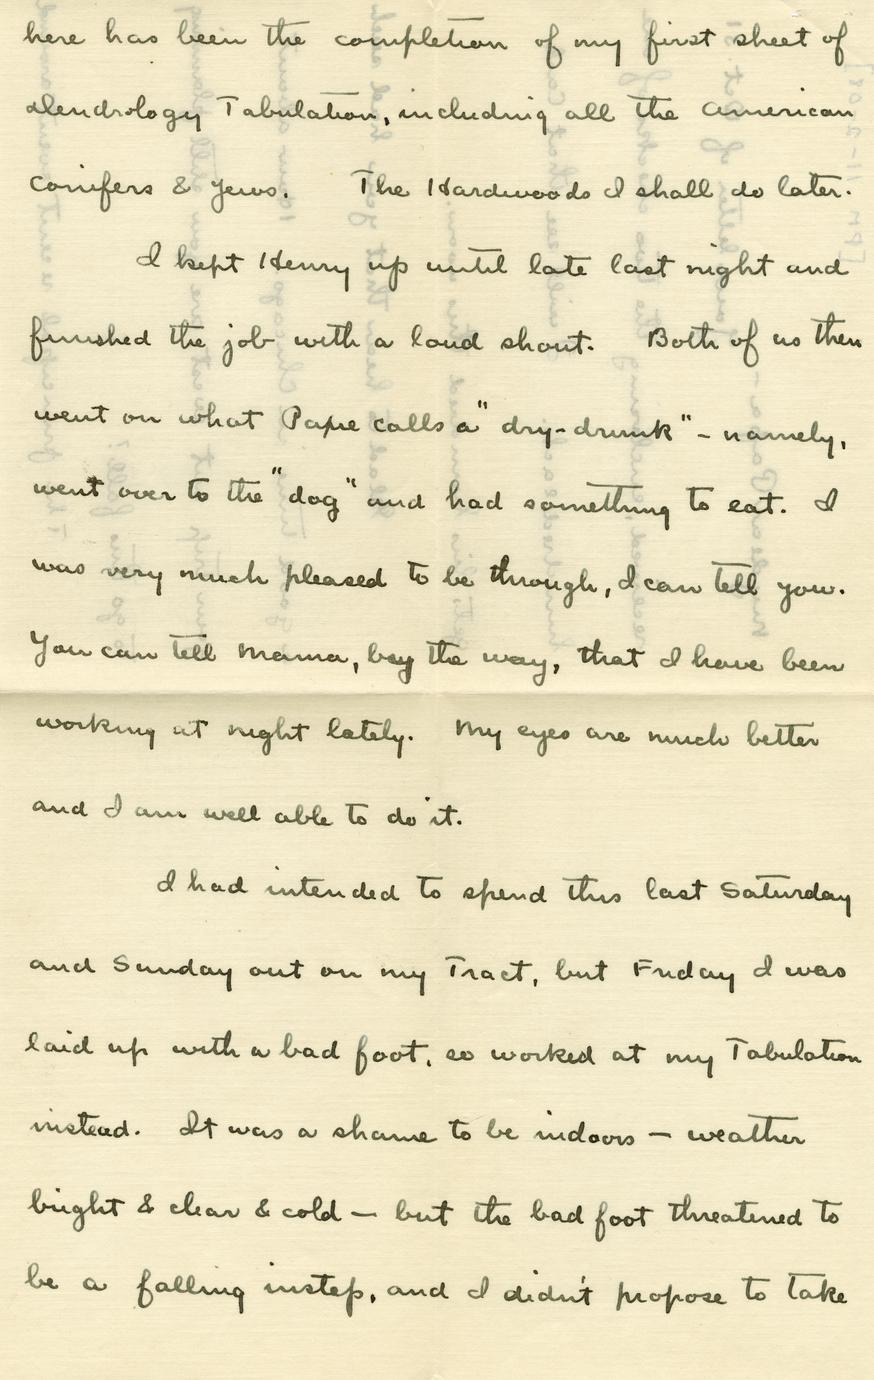 here has been the completion of my first sheet of
Dendrology Tabulation, including all the American
conifers & yews. The Hardwoods I shall do later.
I kept Henry up until late last night and
finished the job with a loud shout. Both of us then
went on what Pape calls a "dry-drunk" - namely,
went over to the "dog" and had something to eat. I
was very much pleased to be through, I can tell you.
You can tell Mama, by the way, that I have been
working at night lately. My eyes are much better
and I am well able to do it.
I had intended to spend this last Saturday
and Sunday out on my Tract, but Friday I was
laid up with a bad foot, so worked at my Tabulation
instead. It was a shame to be indoors — weather
bright & clear & cold — but the bad foot threatened to
be a falling instep, and I didn't propose to take